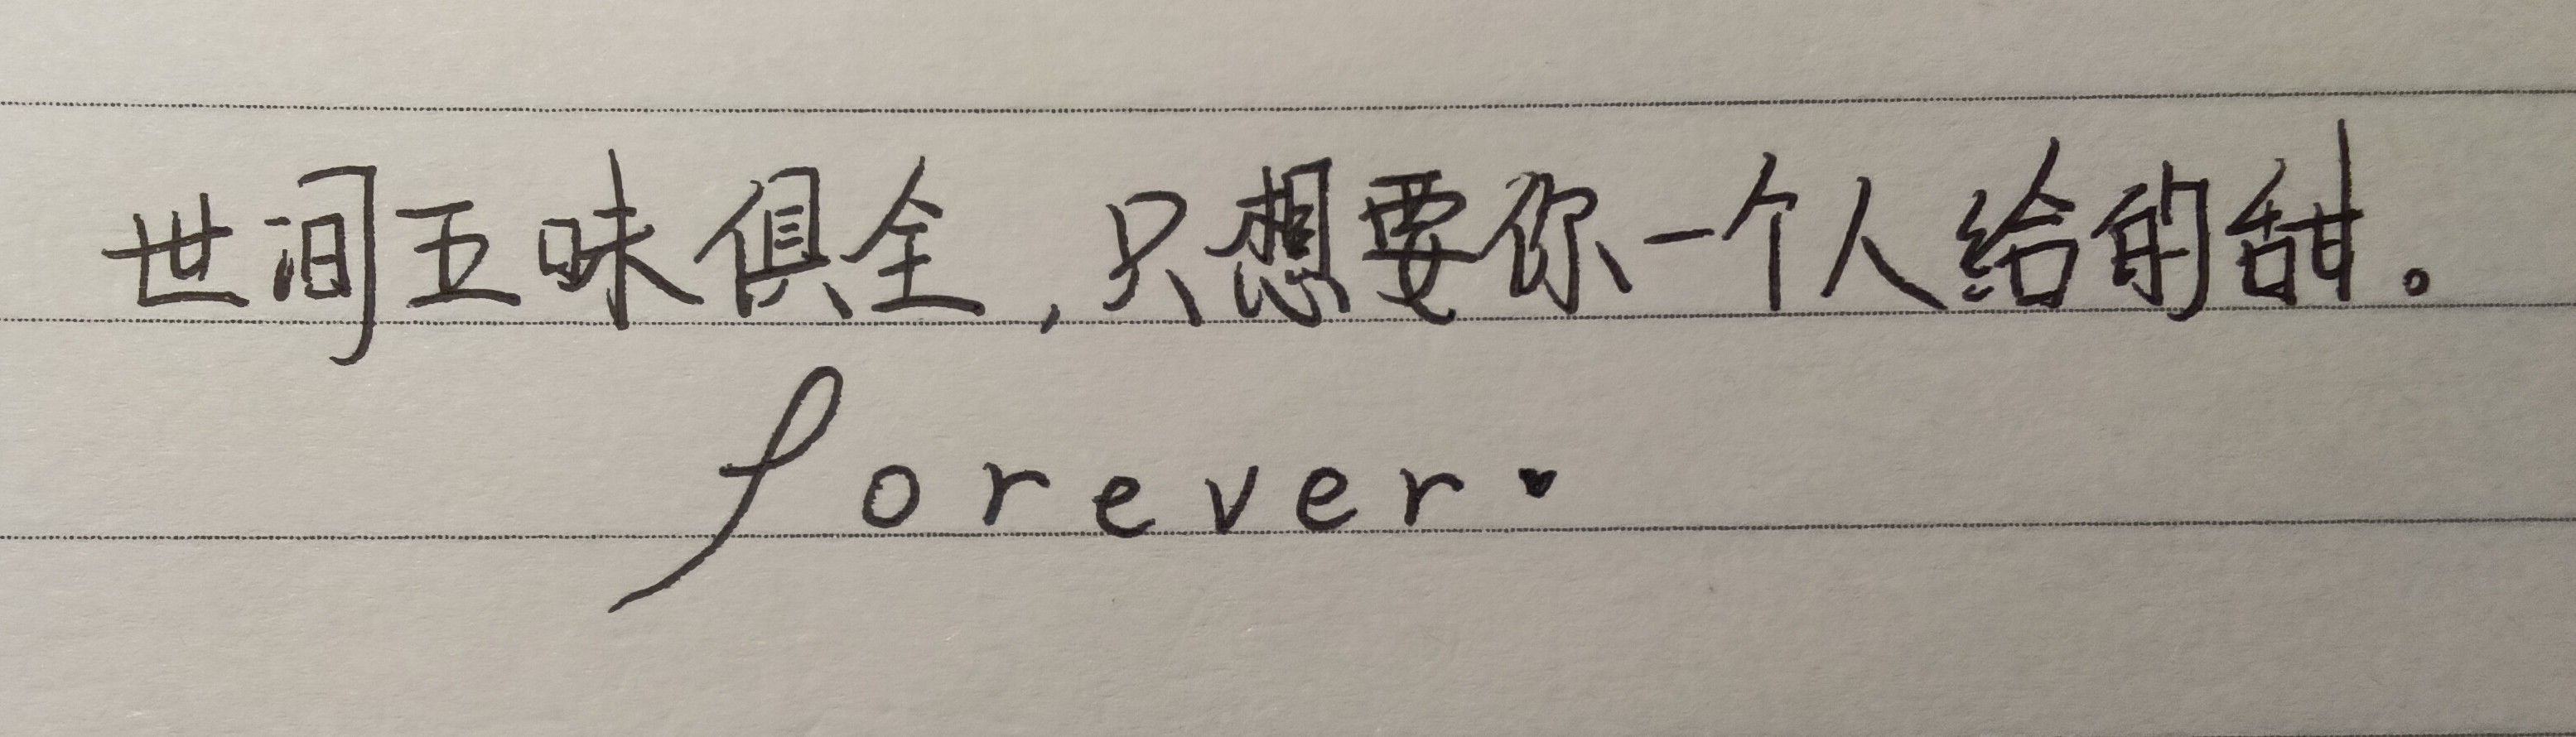 世间五味俱全,只想要你一个人给的甜。
forever♥